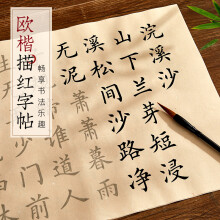 欧楷描红字帖
畅享书法乐趣
浣溪沙
山下兰芽短浸
溪松间沙路净
无泥萧萧暮雨
谁道人